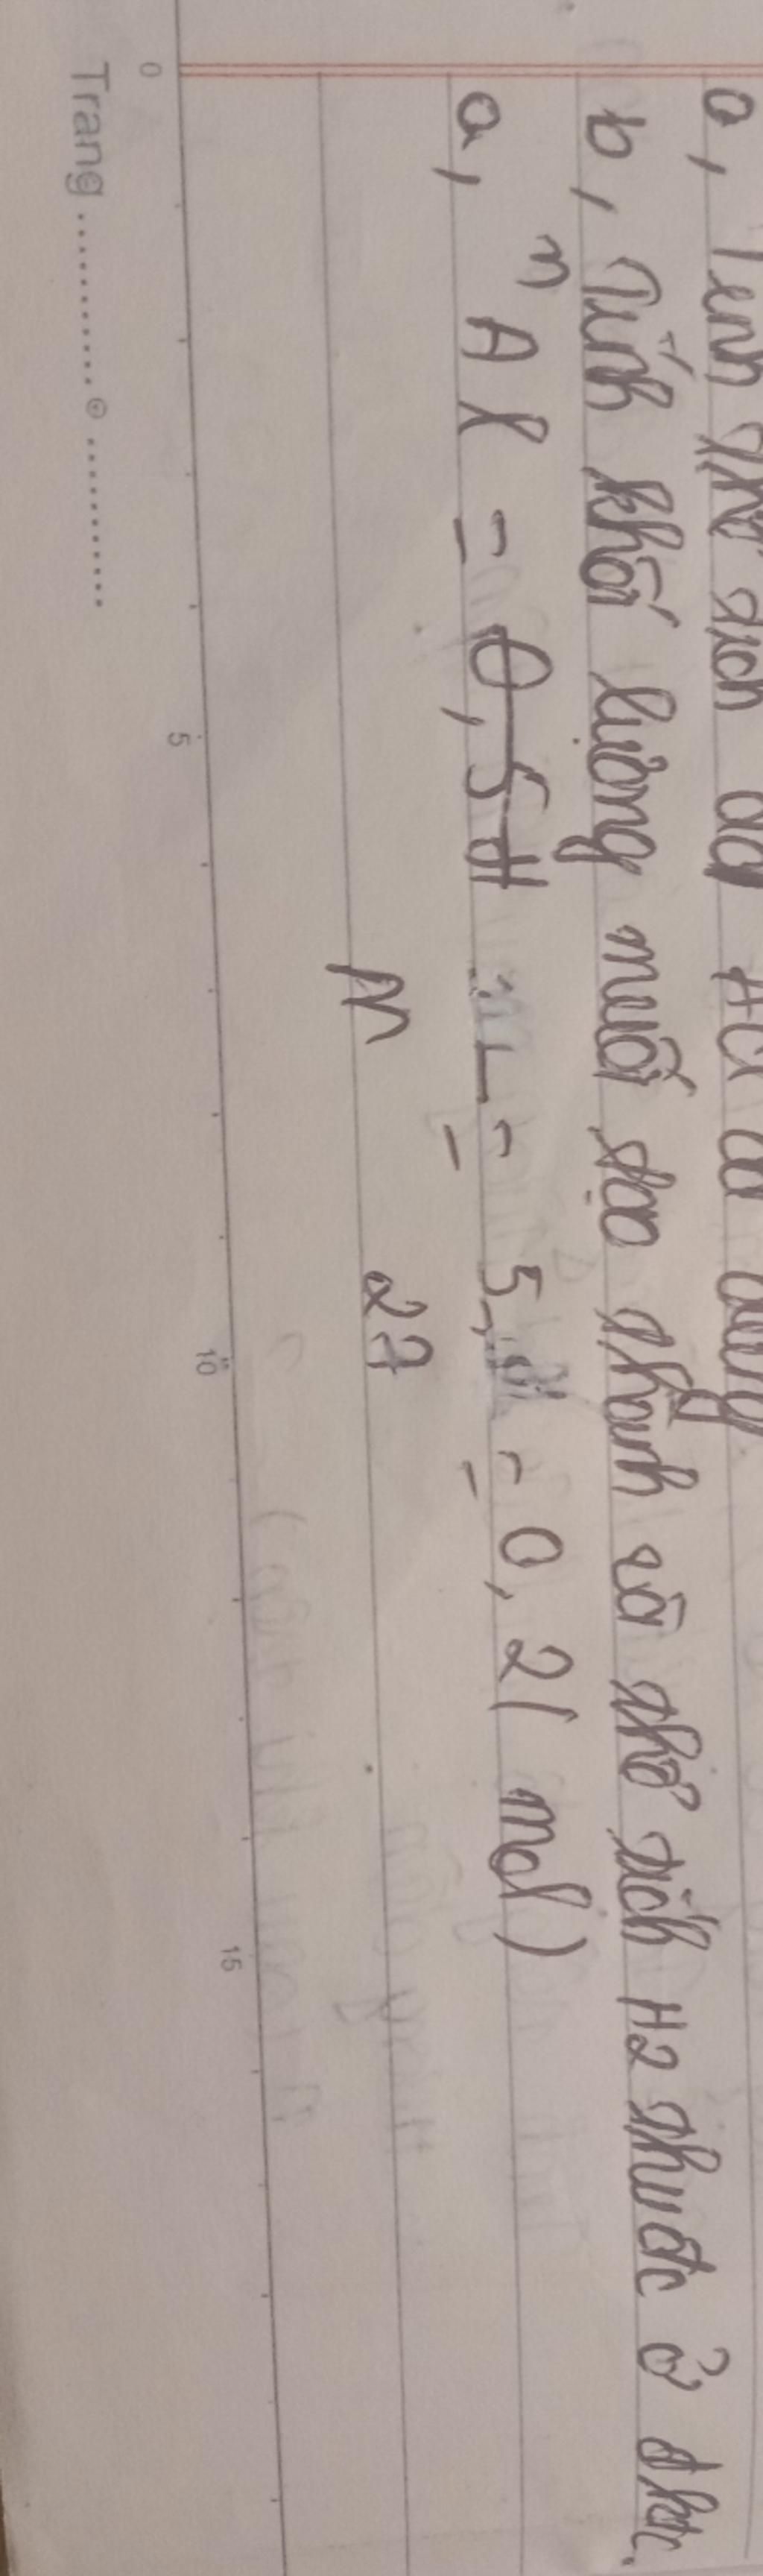 a, Tính thể tích dd HCl đã dùng
b, Tính khối lượng muối tạo thành và thể tích H2 thu đc ở đktc.
a, nAl = m = 5,4 = 0,2 ( mol )
M 27
0 5 10 15
Trang